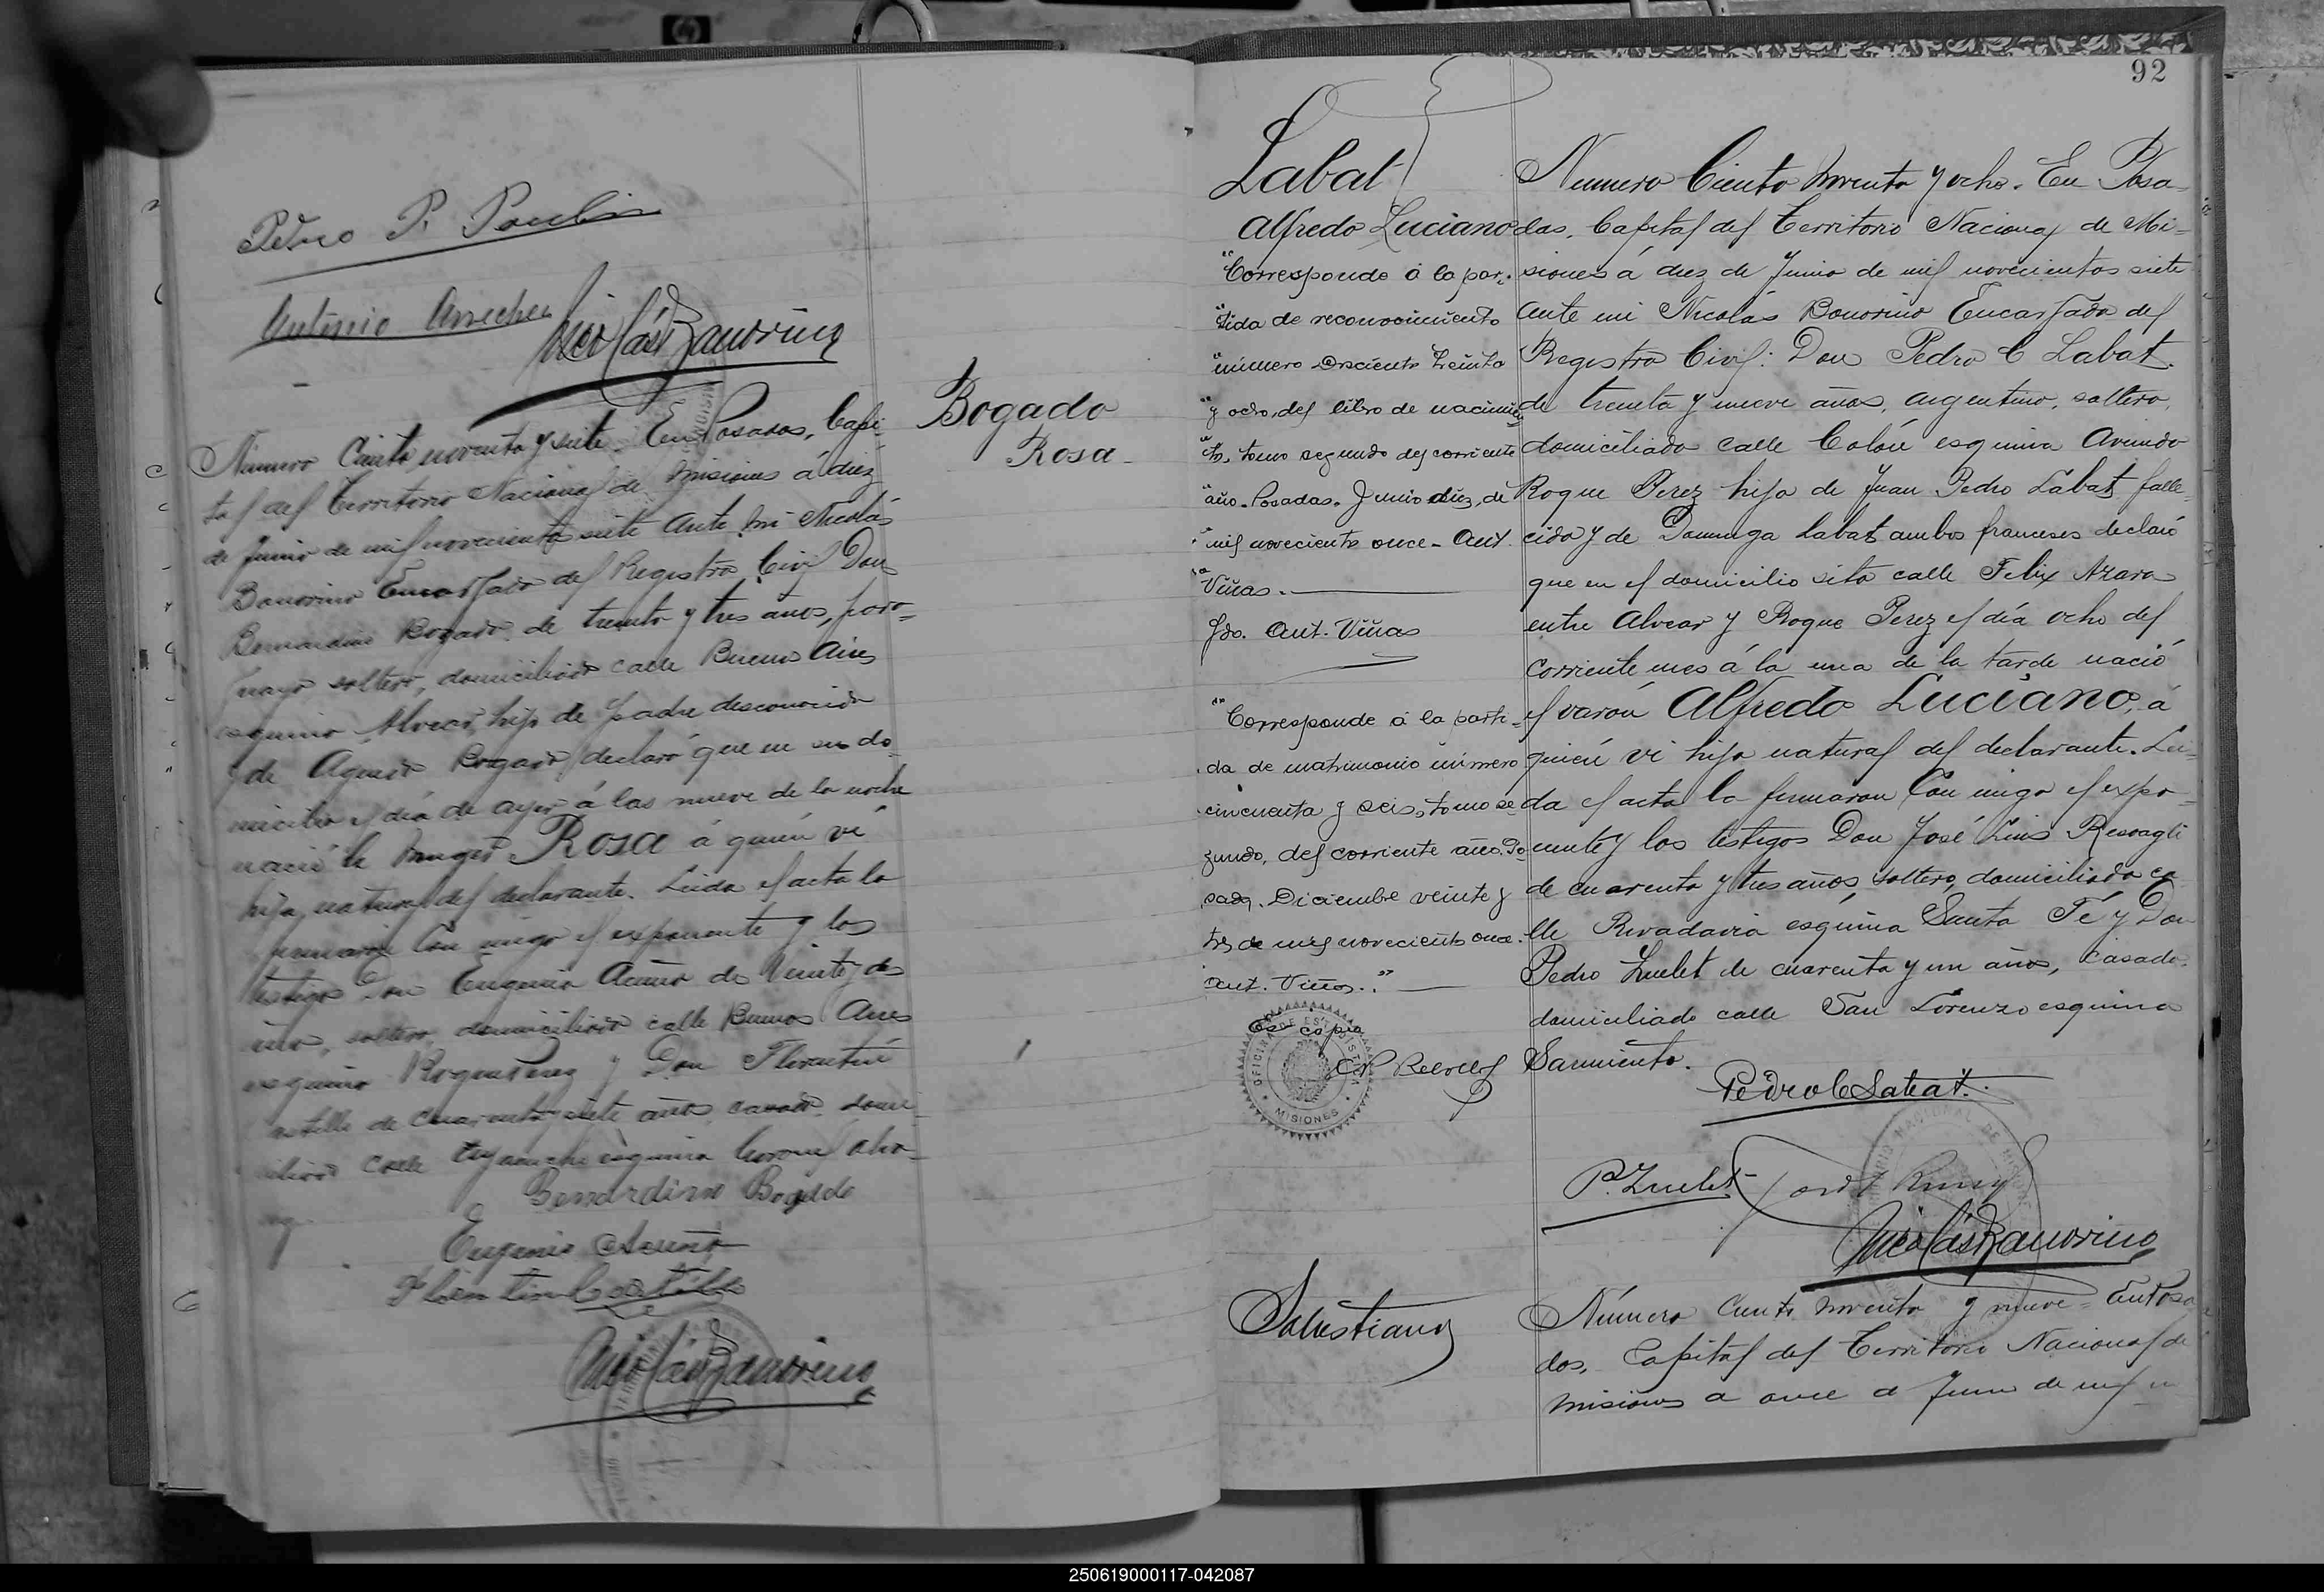 Pedro P.
Antonio Arrechea
Nicolás Bonorino
Número Ciento noventa y siete. En Posadas, Capi-
tal del Territorio Nacional de Misiones á diez
de Junio de mil novecientos siete Ante mi Nicolás
Bonorino Encargado del Registro Civil Don
Bernardino Bogado de treinta y tres años, para-
guayo soltero, domiciliado calle Buenos Aires
esquina Alvear, hijo de padre desconocido
y de Bogado declaró que en su do-
micilio el día de ayer á las nueve de la noche
nació la muger Rosa á quién ví
hija natural del declarante. Leida el acta la
firmaron Con migo el exponente y los
testigos Don Eugenio Acuña de veinte y dos
años, soltero, domiciliado calle Buenos Aires
esquina Roque Perez y Don Florentin
de cuarenta y siete años, casado domi-
ciliado calle Ayacucho esquina
Bernardino Bogado
Eugenio Acuña
Florentin
Nicolás Bonorino
Bogado
Rosa
92
Labat
Alfredo Luciano
"Corresponde á la par-
"tida de reconocimiento
"número Doscientos treinta
"y ocho, del libro de nacimien
"to, tomo segundo del corriente
"año. Posadas. Junio diez, de
"mil novecientos once - Ant.
"Viñas.
Fdo. Ant. Viñas
"Corresponde á la parti-
da de matrimonio número
cincuenta y seis, tomo se-
gundo, del corriente año. Po
sadas. Diciembre veinte y
tres de mil novecientos once.
Ant. Viñas."
Es copia
OFICINA DE ESTADISTICA
MISIONES
Numero Ciento noventa y ocho. En Posa-
das, Capital del Territorio Nacional de Mi-
siones á diez de Junio de mil novecientos siete
Ante mi Nicolás Bonorino Encargado del
Registro Civil: Don Pedro C Labat.
de treinta y nueve años, argentino, soltero,
domiciliado calle Colón esquina Avenida
Roque Perez hijo de Juan Pedro Labat falle-
cido y de Dominga Labat ambos franceses declaró
que en el domicilio sito calle Felix Azara
entre Alvear y Roque Perez el día ocho del
corriente mes á la una de la tarde nació
el varón Alfredo Luciano, á
quién ví hijo natural del declarante. Lei-
da el acta la firmaron Con migo el expo-
nente y los testigos Don José Luis Resoagli
de cuarenta y tres años, soltero, domiciliado ca-
lle Rivadavia esquina Santa Fé y Don
Pedro Zuelet de cuarenta y un años, casado,
domiciliado calle San Lorenzo esquina
Sarmiento.
Pedro C Labat.
P. Zuelet
Nicolás Bonorino
Número Ciento noventa y nueve = En Posa
das, Capital del Territorio Nacional de
Misiones a once de Junio de mil
250619000117-042087